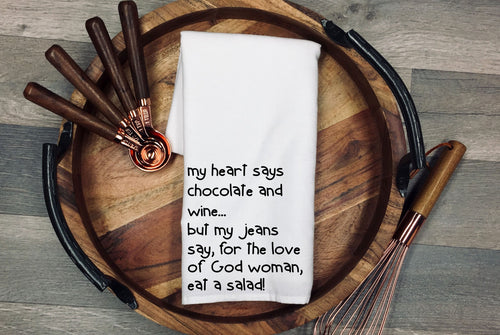 my heart says
chocolate and
wine...
but my jeans
say, for the love
of God woman,
eat a salad!